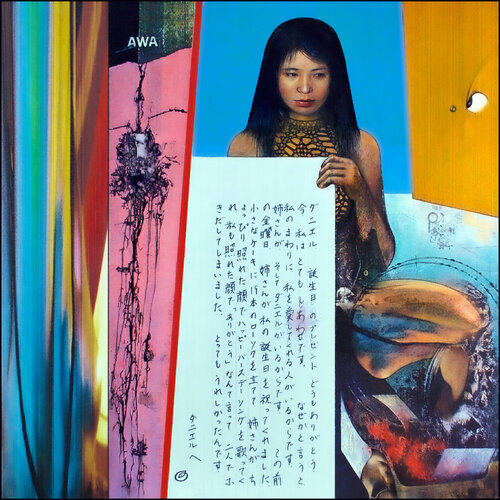 AWA
ダニエル 誕生日のプレゼント どうもありがとう
今、私はとてもしあわせです。 なぜかと言うと
私のまわりに、私を愛してくれる人がいるからです
姉さんが、そしてダニエルがいるからです。 この前
の金曜日、姉さんが私の誕生日を祝ってくれました
小さなケーキに19本のローソクを立てて 姉さんがち
ょっぴり照れた顔で、ハッピーバースデーソングを歌ってく
れ、私も照れた顔で「ありがとう」なんて言って、二人でふ
きだしてしまいました。 とってもうれしかったんです
ダニエルへ